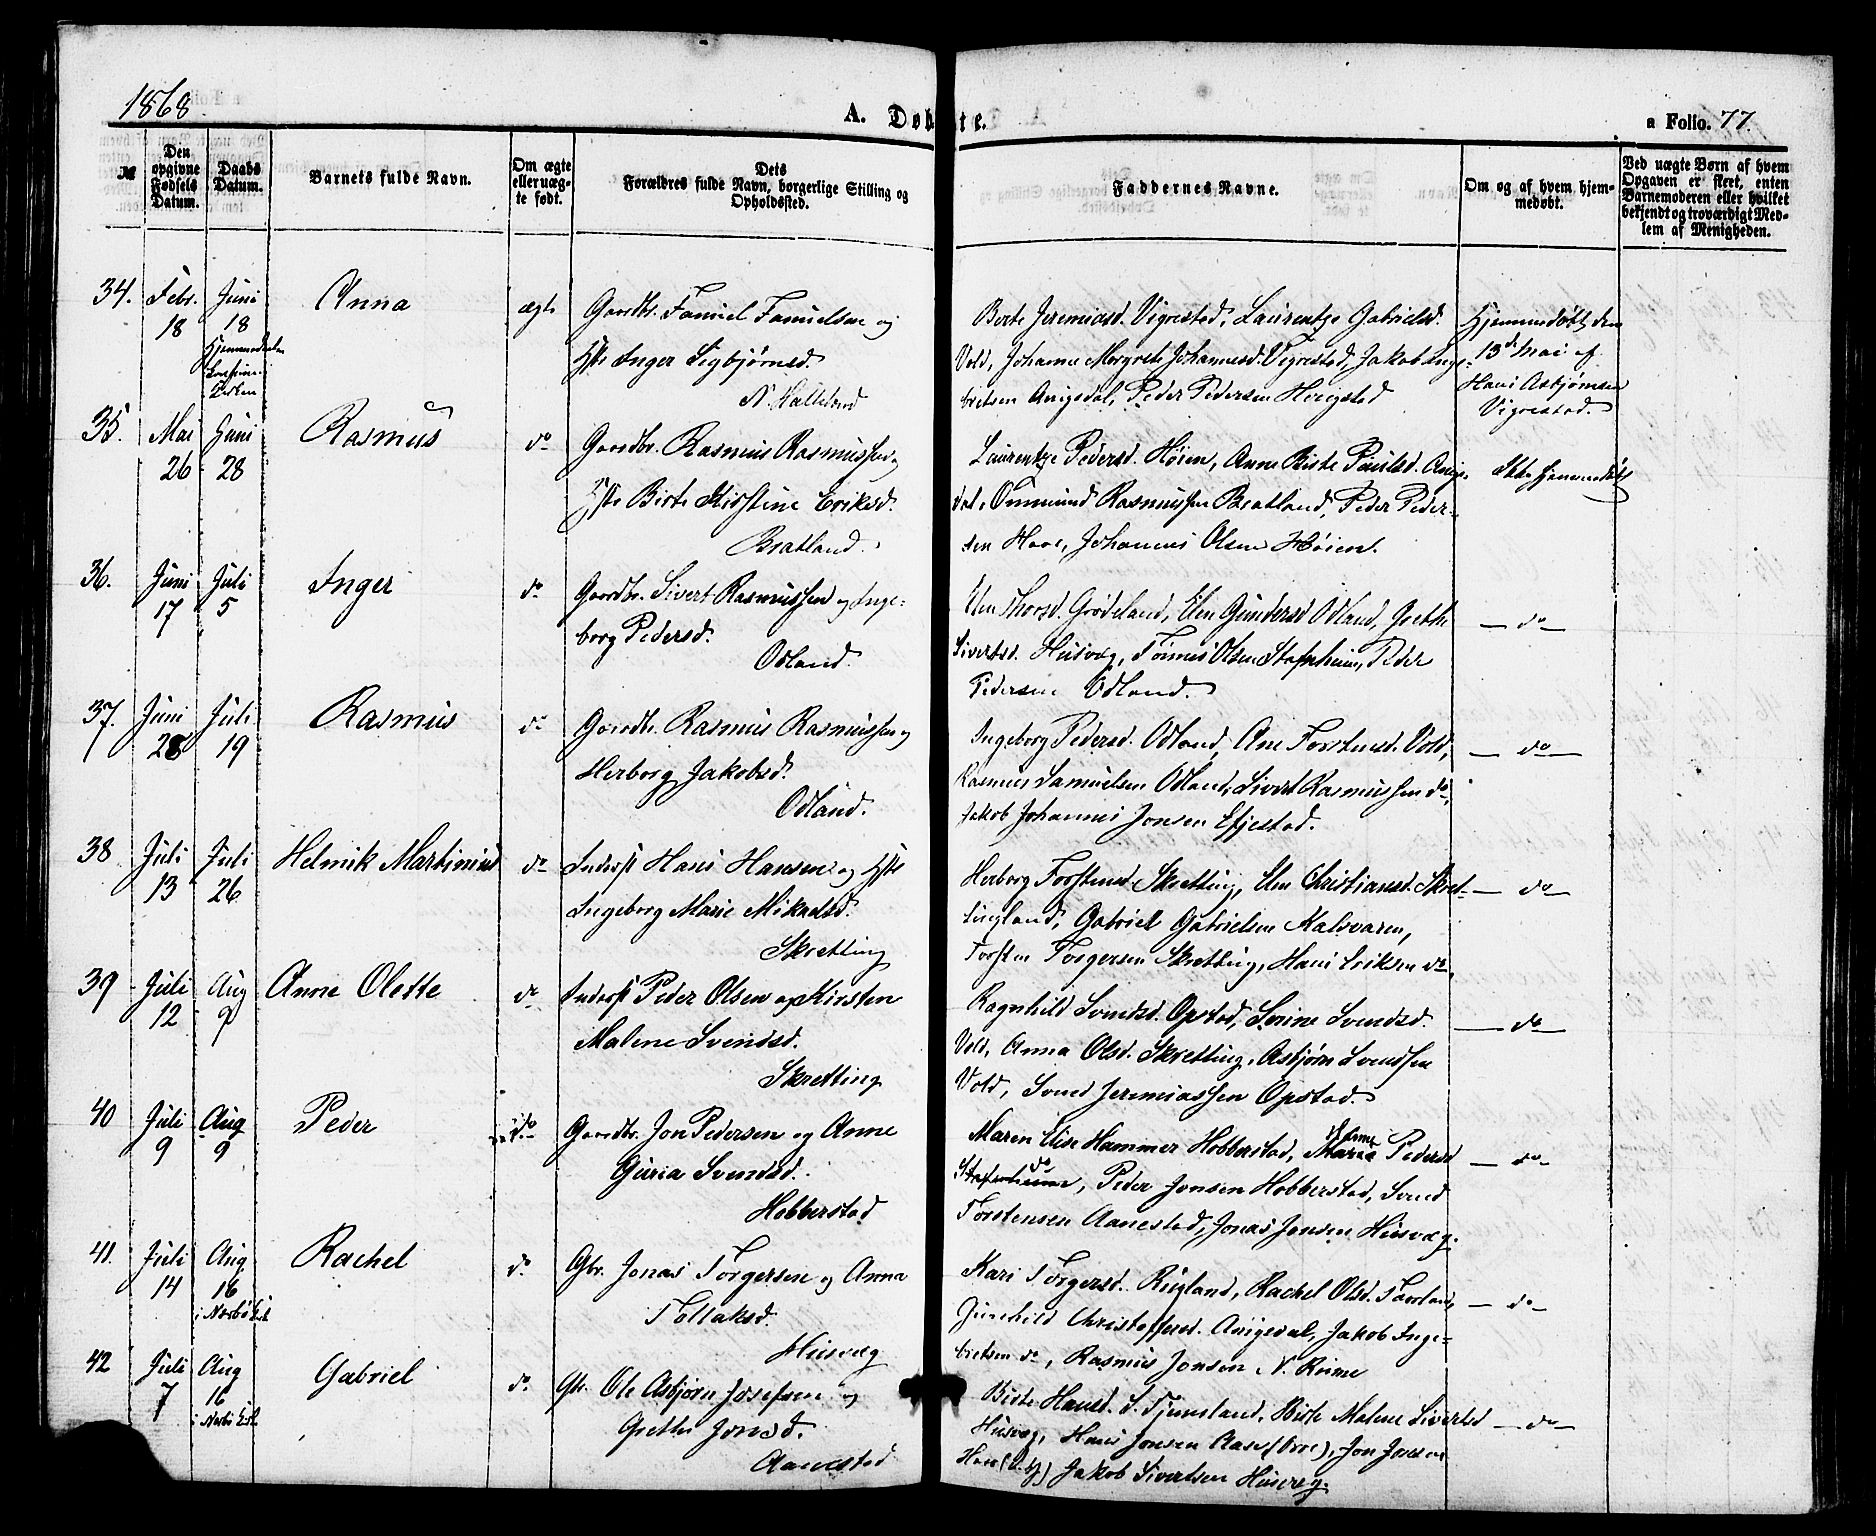 1868.
A. Døbte.
a Folio. 77.
№
Den opgivne Fødsels Datum.
Daabs Datum.
Barnets fulde Navn.
Om ægte eller uæg-
te født.
Dets
Forældres fulde Navn, borgerlige Stilling og
Opholdssted.
Faddernes Navne.
Om og af hvem hjem-
medøbt.
Ved uægte Børn af hvem
Opgaven er skeet, enten
Barnemoderen eller hvilket
bekjendt og troværdigt Med-
lem af Menigheden.
34. Febr. 18 Juni 18 Anna ægte
Gaardbr. Samuel Samuelsen og
Hst. Inger Sigbjørnsd.
N. Haлland
Berte Jeremiasd. Vigrestad, Laurentze Gabrielsd.
Vold, Johanne Margrete Johannesd. Vigrestad, Jakob Inge-
bretsen Auigedal, Peder Pedersen Herigstad
Hjemmedøbt den
13de Mai af
Hans Asbjørnsen
Vigrestad.
35. Mai 26 Juni 28 Rasmus do
Gaardbr. Rasmus Rasmussen og
Hst. Birte Kirstine Eriksd.
Bratland.
Laurentze Pedersd. Høien, Anne Birte Paulsd. Auige-
dal, Ommund Rasmussen Bratland, Peder Peder-
sen Haar, Johannes Olsen Høien.
Ikke hjemmedøbt
36. Juni 17 Juli 5 Inger do
Gaardbr. Sivert Rasmussen og Inge-
borg Pedersd.
Odland.
Elen Thorsd. Grødeland, Elen Gundersd Odland, Grethe
Sivertsd. Husvæg, Tønnes Olsen Stafnheim, Peder
Pedersen Odland.
— do —
37. Juni 28 Juli 19 Rasmus do
Gaardbr. Rasmus Rasmussen og
Herborg Jakobsd.
Odland.
Ingeborg Pedersd. Odland, Ane Torstensd. Vold,
Rasmus Samuelsen Odland, Sivert Rasmussen do,
Jakob Johannes Jonsen Efjestad.
— do —
38 Juli 13 Juli 26 Helmik Martinius do
Inderst Hans Hansen og Hst.
Ingeborg Marie Mikaelsd.
Skretting
Herborg Torstensd. Skretting, Elen Christiansd. Skret-
tingland, Gabriel Gabrielsen Kalsvaren,
Torsten Torgersen Skretting, Hans Eriksen do.
— do —
39 Juli 12 Aug 9 Anne Olette do
Inderst Peder Olsen og Kirsten
Malene Svendsd.
Skretting
Ragnhild Svendsd. Opstad, Serine Svendsd.
Vold, Anna Olsd. Skretting, Asbjørn Svendsen
Vold, Svend Jeremiassen Opstad.
— do —
40 Juli 9 Aug 9 Peder do
Gaardbr. Jon Pedersen og Anne
Guria Svendsd.
Hobberstad
Maren Elise Hammer Hobberstad, Marie Pedersd
do, Peder Jonsen Hobberstad, Svend
Torstensen Aanestad, Jonas Jonsen Husvæg.
— do —
41. Juli 14 Aug 16 i Nærbø Kirk Rachel do
Gbr. Jonas Torgersen og Anna
Tollaksd.
Husvæg
Kari Torgersd. Rugland, Rachel Olsd. Tarland,
Gunhild Christoffersd. Auigedal, Jakob Inge-
bretsen do, Rasmus Jonson N. Reime
— do —
42 Juli 7 Aug 16 i Nærbø Kirk Gabriel do
Gbr. Ole Asbjørn Josefsen og
Grethe Jonsd.
Aanestad
Birte Hansd. S. Tjemsland, Birte Malene Sivertsd
Husvæg, Hans Jonsen Aase (Orre), Jon Jonsen
Haar, Jakob Sivertsen Husvæg.
— do —